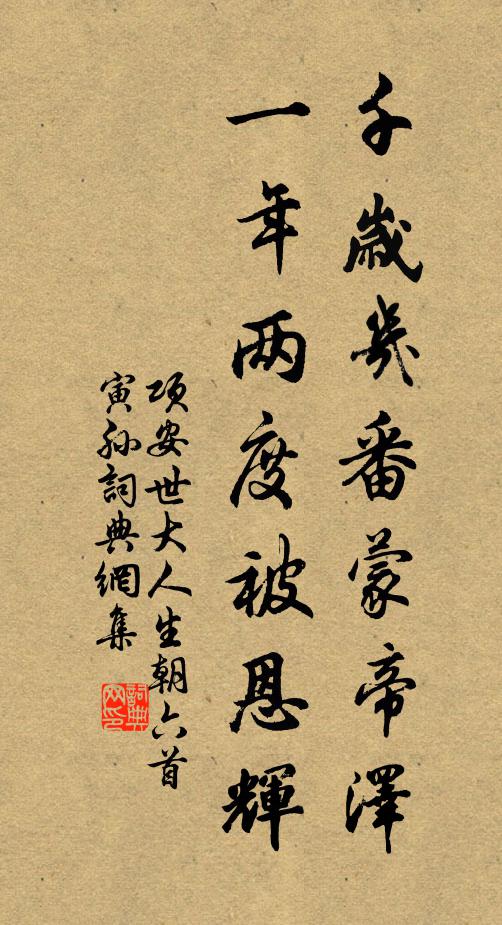 千歲幾番蒙帝澤
一年两度被恩輝
項安世大人生朝六首
寅孫詞典網集
詞典网印